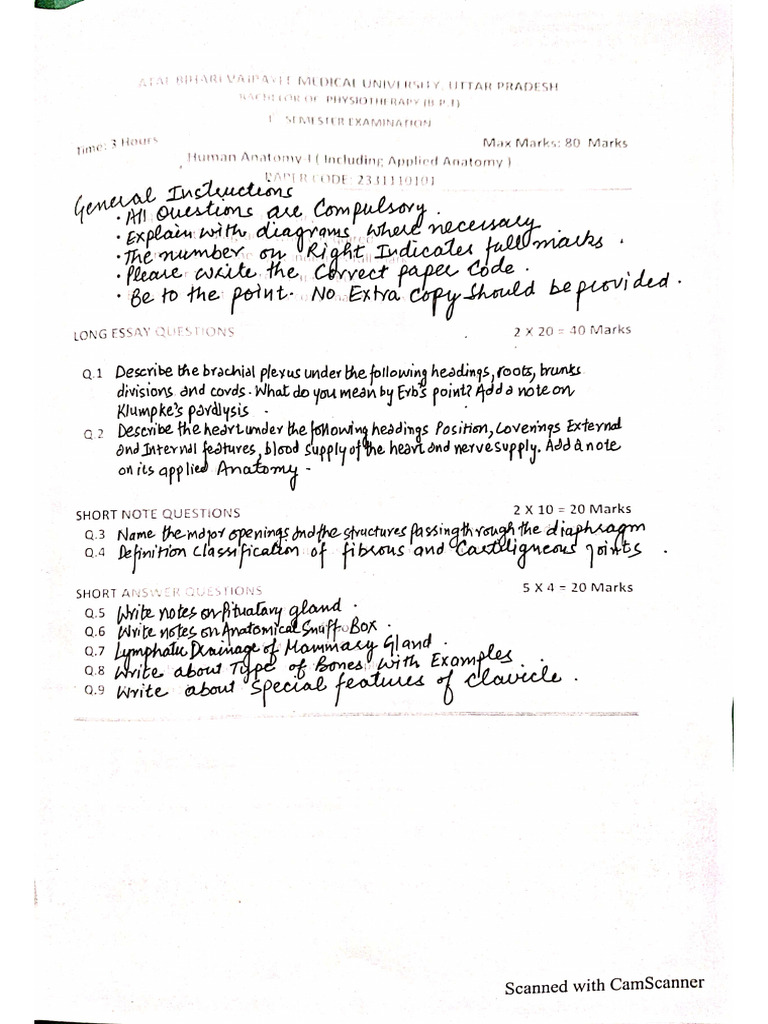 ATAL BIHARI VAJPAYEE MEDICAL UNIVERSITY, UTTAR PRADESH
BACHELOR OF PHYSIOTHERAPY (B.P.T)
SEMESTER EXAMINATION
Time: 3 Hours Max Marks: 80 Marks
Human Anatomy-I ( Including Applied Anatomy )
PAPER CODE: 2331110101
General Instructions
• All Questions are Compulsory.
• Explain with diagrams where necessary
• The number on Right Indicates full marks.
• Please write the Correct paper Code.
• Be to the point. No Extra Copy Should be provided.
LONG ESSAY QUESTIONS 2 X 20 = 40 Marks
Q.1 Describe the brachial plexus under the following headings, roots, trunks
divisions and cords. What do you mean by Erb's point? Add a note on
Klumpke's paralysis.
Q.2 Describe the heart under the following headings Position, Coverings External
and Internal features, blood supply of the heart and nerve supply. Add a note
on its applied Anatomy -
SHORT NOTE QUESTIONS 2 X 10 = 20 Marks
Q.3 Name the major openings and the structures passing through the diaphragm
Q.4 Definition Classification of fibrous and Cartiligneous joints.
SHORT ANSWER QUESTIONS 5 X 4 = 20 Marks
Q.5 Write notes on Pituatary gland.
Q.6 Write notes on Anatomical Snuff Box.
Q.7 Lymphatic Drainage of Mammary Gland.
Q.8 Write about Type of Bones with Examples.
Q.9 Write about Special features of Clavicle.
Scanned with CamScanner